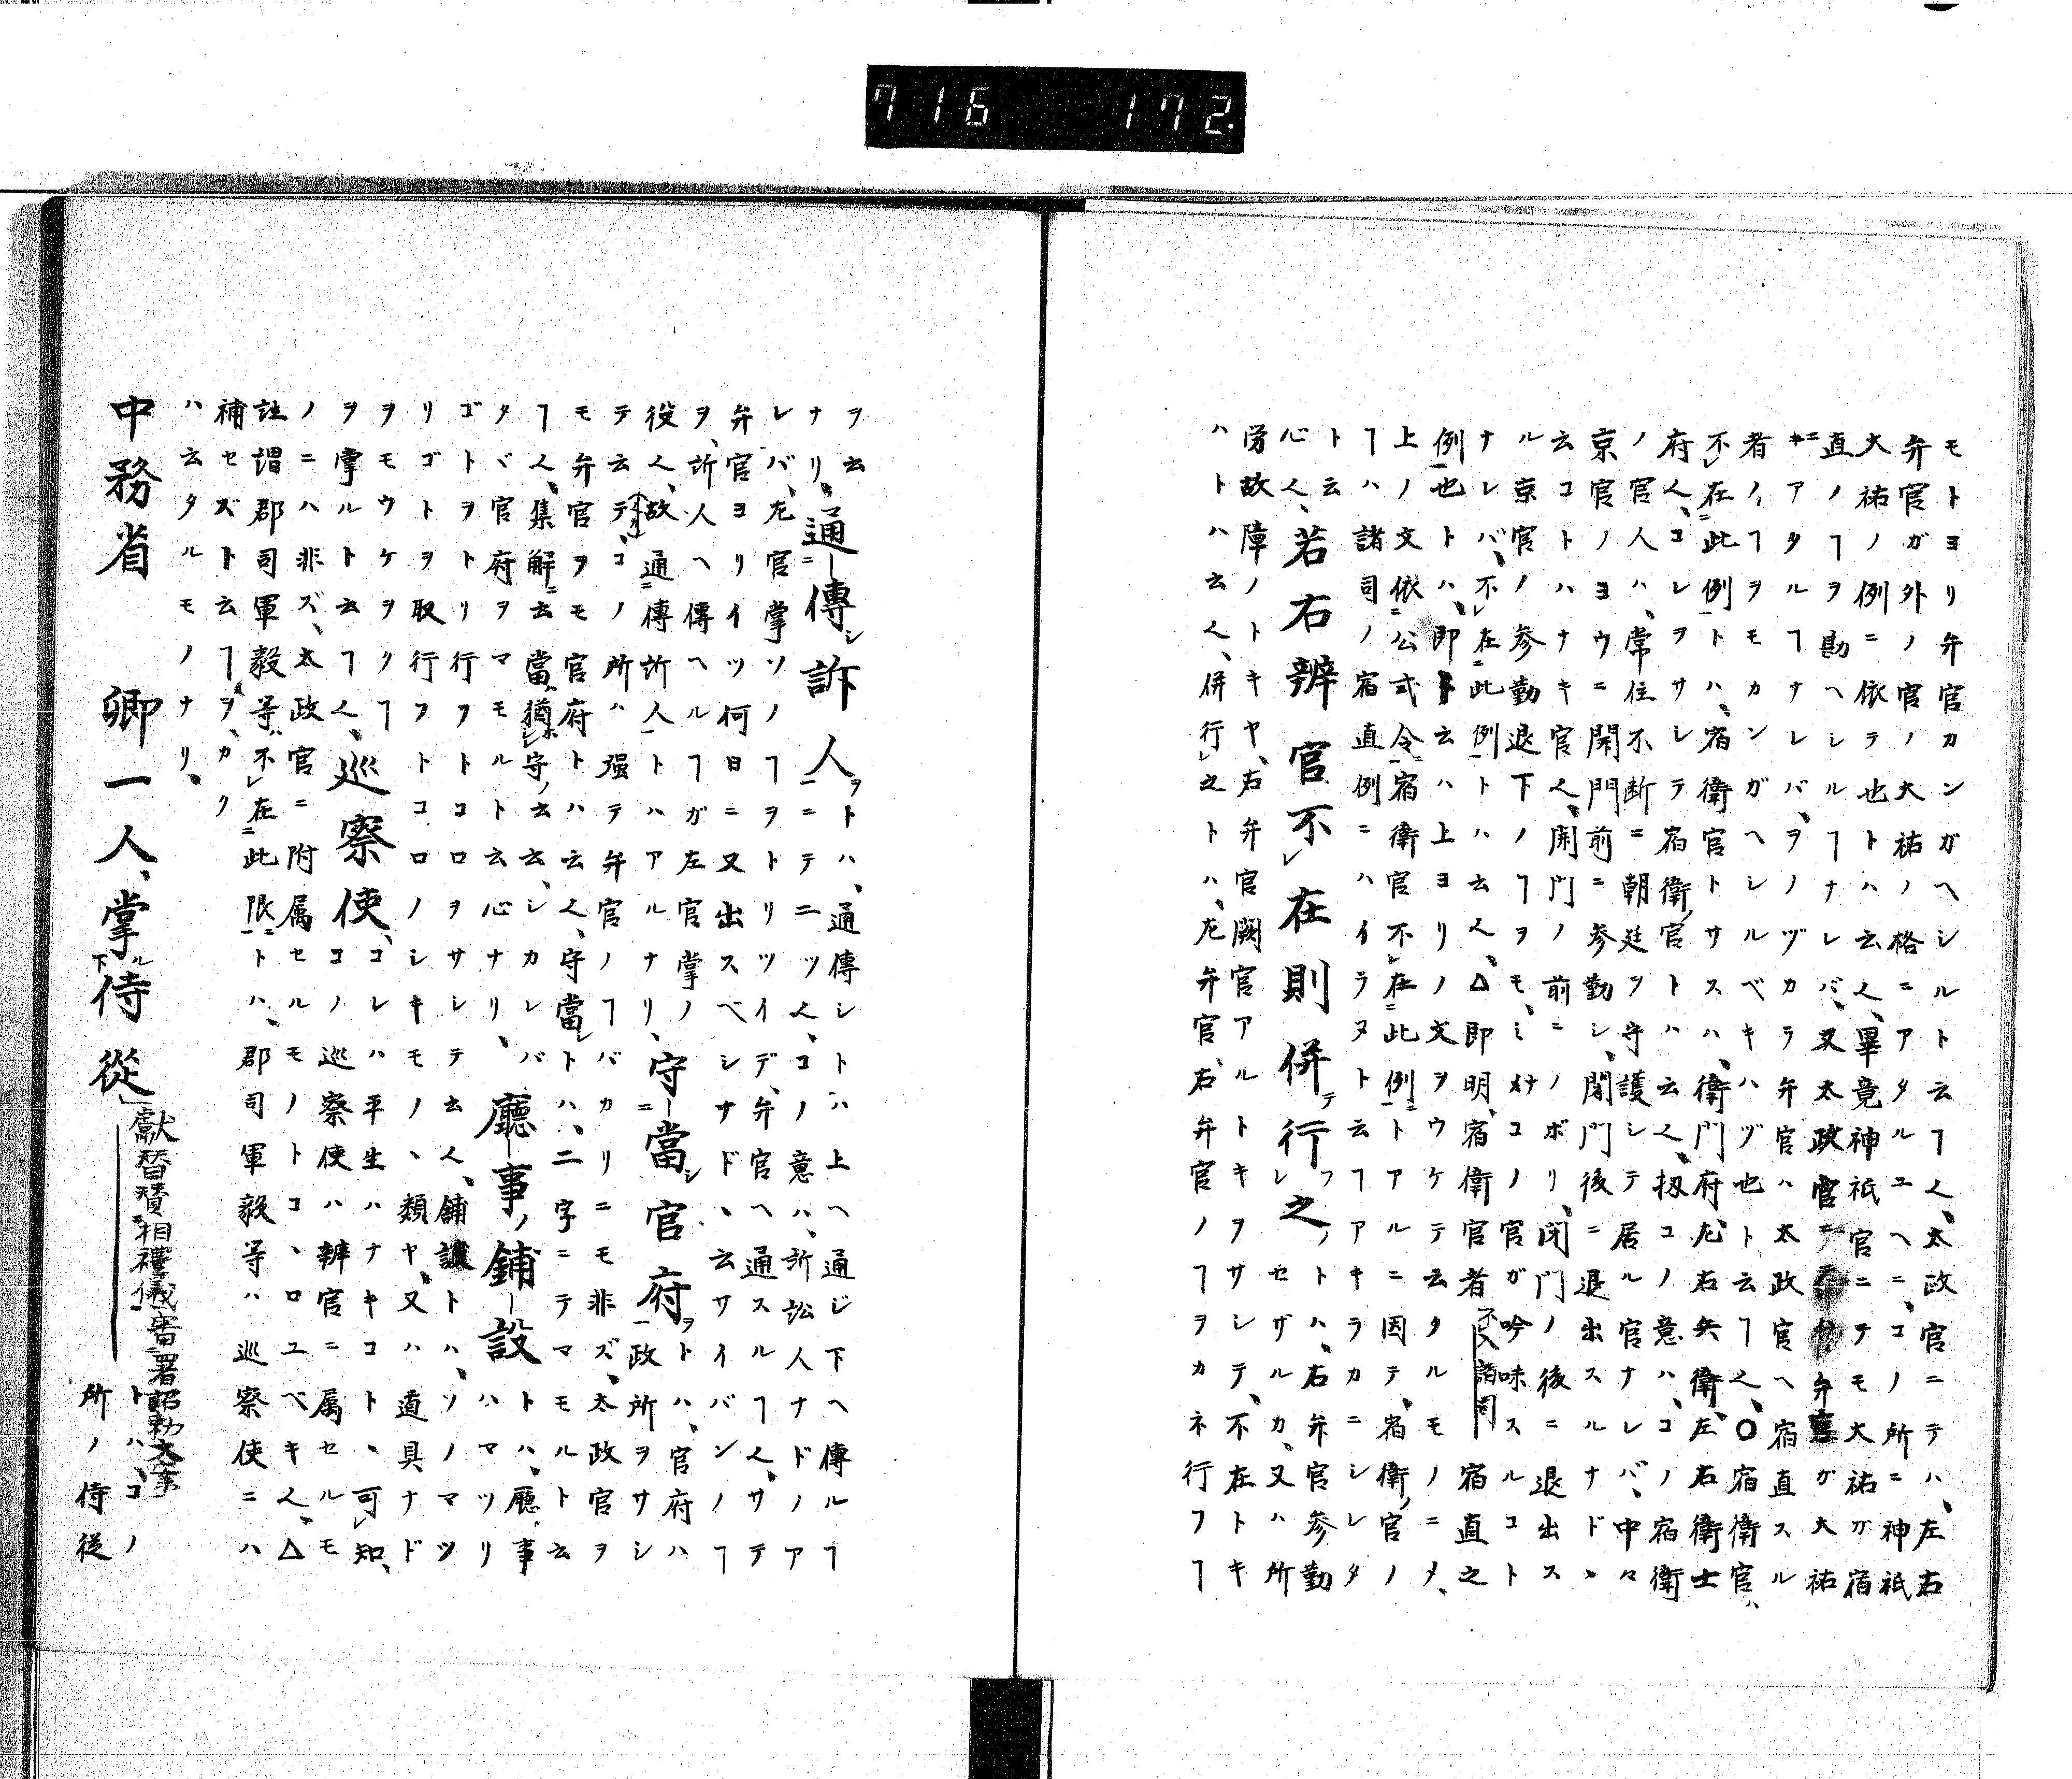 716 172.
モトヨリ弁官カンガヘシルト云ヿ𪜈、太政官ニテハ、左右
弁官ガ外ノ官ノ大祐ノ格ニアタルユヘニ、コノ所ニ神祇
大祐ノ例ニ依テ也トハ云𪜈、畢竟神祇官ニテモ大祐ガ宿
直ノヿヲ勘ヘシルヿナレバ、又太政官ニテ弁ガ大祐
ニアタルヿナレバ、ヲノヅカラ弁官ハ太政官ヘ宿直スル
者ノヿヲモカンガヘシルベキハヅ也ト云ヿ𪜈、〇宿衛官ハ
不レ在二此例一トハ、宿衛官トサスハ、衛門府、左右兵衛、左右衛士
府𪜈、コレヲサシテ宿衛ノ官トハ云𪜈、扨コノ意ハ、コノ宿衛
ノ官人ハ、常住不断ニ朝廷ヲ守護シテ居ル官ナレバ、中々
京官ノヨウニ開門前ニ参勤シ、閉門後ニ退出スルナドヽ
云コトハナキ官𪜈、開門ノ前ニノボリ、閉門ノ後ニ退出ス
ル京官ノ参勤退下ノヿヲモ、コノ官ガ吟味スルコト
ナレバ、不レ在二此例一トハ云𪜈、△即明、宿衛官者不入諸司宿直之
例一也トハ、即ト云ハ上ヨリノ文ヲウケテ云タルモノニメ、
上ノ文依二公式令一宿衛官不レ在二此例一トアルニ因テ、宿衛ノ官ノ
ヿハ諸司ノ宿直例ニハイラヌト云ヿアキラカニシレタ
ト云
心𪜈、若右辨官不レ在則併行之トハ、右弁官参勤
セザルカ、又ハ所
労故障ノトキヤ、右弁官闕官アルトキヲサシテ、不在トキ
ハトハ云𪜈、併行レ之トハ、左弁官右弁官ノヿヲカネ行フヿ
ヲ云
ナリ、通二傳シ訴人一ヲトハ、通傳シトハ上ヘ通ジ下ヘ傳ルヿ
ニテ二ツ𪜈、コノ意ハ、訴訟人ナドノア
レバ、左官掌ソノヿヲトリツイデ、弁官ヘ通スルヿ𪜈、サテ
弁官ヨリイツ何日ニ又出スベシサドヽ云サイバンノヿ
ヲ、訴人ヘ傳ヘルヿガ左官掌ノ
役𪜈、故通二傳訴人一トハアルナリ、守二當シ官府一ヲトハ、官府ハ
政所ヲサシ
テ云テ、コノ所ハ强テ弁官ノヿバカリニモ非ズ、太政官ヲ
モ弁官ヲモ官府トハ云𪜈、守當トハ、二字ニテマモルト云
ヿ𪜈、集解二云當、猶レ守ノ云云、シカレバ廳事ノ鋪設トハ、廳事
ハマツリ
タヾ官府ヲマモルト云心ナリ、
ゴトヲトリ行フトコロヲサシテ云𪜈、鋪設トハ、ソノマツ
リゴトヲ取行フトコロノシキモノヽ類ヤ、又ハ道具ナド
ヲモウケヲクヿ𪜈、巡察使、コレハ平生ハナキコトヽ可レ知、
ヲ掌ルト云ヿ𪜈、コノ巡察使ハ辨官ニ属セルモ
ノニハ非ズ、太政官ニ附属セルモノトコヽロユベキ𪜈、△
註謂郡司軍毅等、不レ在二此限一トハ、郡司軍毅等ハ巡察使ニハ
補セズト云ヿヲ、カリ
ハ云タルモノナリ、
中務省 卿一人、掌下ル侍從、獻替賛相禮儀、審署詔勅文案
トハ、コノ
所ノ侍從